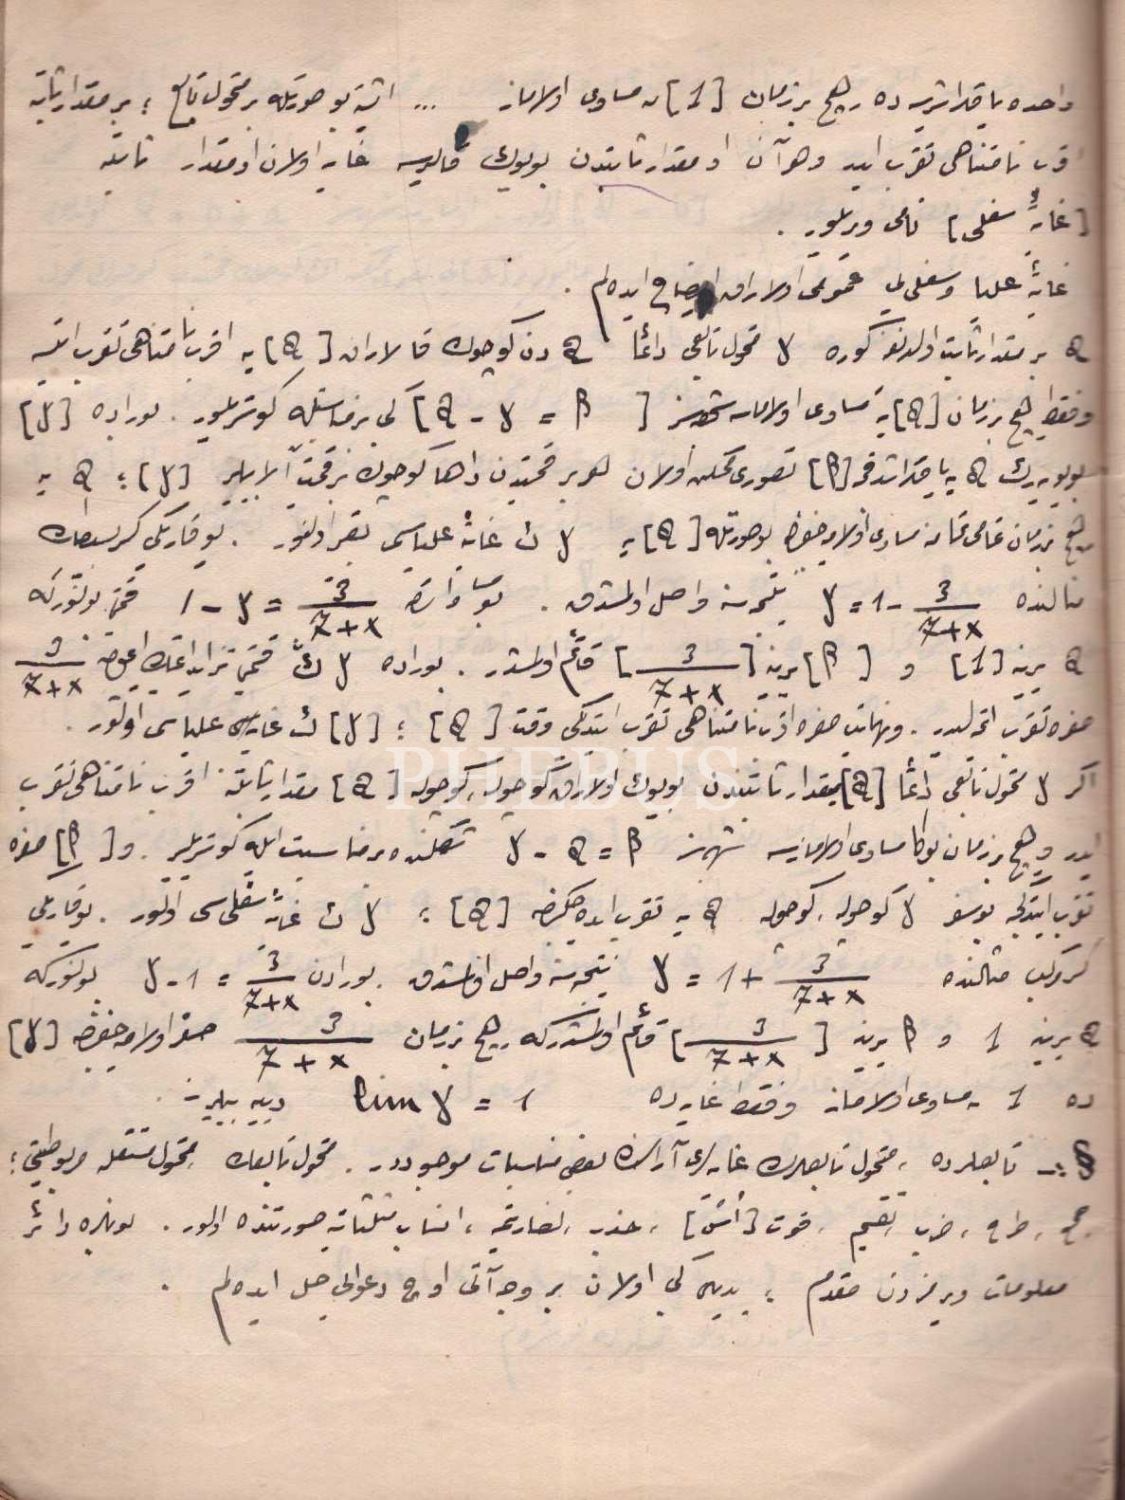 واحده یاقلاشیرسه ده هیچ بر زمان [1] ه مساوی اولاماز ... ایشته بو صورتله بر متحول تابع ؛ بر مقدار ثابته
قرب نامتناهی تقرب ایدر و هر آن او مقدار ثابتدن بویوك قالیرسه غایه اولان او مقدار ثابته
[غایهٔ سفلی] نامی ویریلور .
غایهٔ علیا و سفلی یی عمومی اولارق ایضاح ایده لم .
a بر مقدار ثابت اولدیغنه كوره y متحول تابعی دائما a دن كوچوك قالارق [a] یه اقرب نامتناهی تقرب ایتسه
و فقط هیچ بر زمان [a] یه مساوی اولاماسه [a - y = β] كبی بر مناسبتله كوستریلور . بوراده [y]
بویویه رك a یه یاقلاشدقجه [β] تصوری ممكن اولان هر بر قیمتدن داها كوچوك بر قیمت آلابیلیر [y] ؛ a یه
هیچ بر زمان تماما مساوی اولامیه جغندن بو صورتله [a] یه y ك غایهٔ علیاسی تعبیر اولنور . یوقاریكی كسرلرك
مثالنده y = 1 - 3/(7+x) نتیجه سنه واصل اولمشدق . 1 - y = 3/(7+x) بولنوركه
a یرینه [1] و [β] یرینه [3/(7+x)] قائم اولمشدر . بوراده y ك قیمتی تزاید ایتدكجه 3/(7+x)
صفره تقرب ایتمه لیدر . و نهایت صفره اقرب نامتناهی تقرب ایتدیكی وقت [a] ؛ [y] ك غایهٔ علیاسی اولور .
اكر y متحول تابعی دائما [a] مقدار ثابتندن بویوك اولارق كوچوله كوچوله [a] مقدار ثابتنه اقرب نامتناهی تقرب
ایدر و هیچ بر زمان بوكا مساوی اولامازسه y - a = β شكلنده بر مناسبت ایله كوستریلیر . و [β] صفره
تقرب ایتدكجه بو سفر y كوچوله كوچوله a یه تقرب ایده جكندن [a] ؛ y ك غایهٔ سفلی سی اولور . یوقاریكی
كسرلرك مثالنده y = 1 + 3/(7+x) نتیجه سنه واصل اولمشدق . بورادن y - 1 = 3/(7+x) بولنوركه
a یرینه 1 و β یرینه [3/(7+x)] قائم اولمشدركه هیچ بر زمان 3/(7+x) صفر اولامیه جغندن [y]
ده 1 ه مساوی اولاماز و فقط غایه ده lim y = 1 دییه بیلیرز .
§ـ تابعلرده ، متحول تابعلرك غایه لری آراسنده بعض مناسبات موجوددر . متحول تابعك متحول مستقله مربوطیتی ؛
جمع ، طرح ، ضرب ، تقسیم ، قوت [أسّ] ، جذر ، لغاریتمه ، انساب مثلثاتیه صورتنده اولور . بونلره دائر
معلومات ویرمزدن مقدم ؛ بدیهی كبی اولان بر وجه آتی اوچ دعوایی حل ایده لم .
PHEBUS